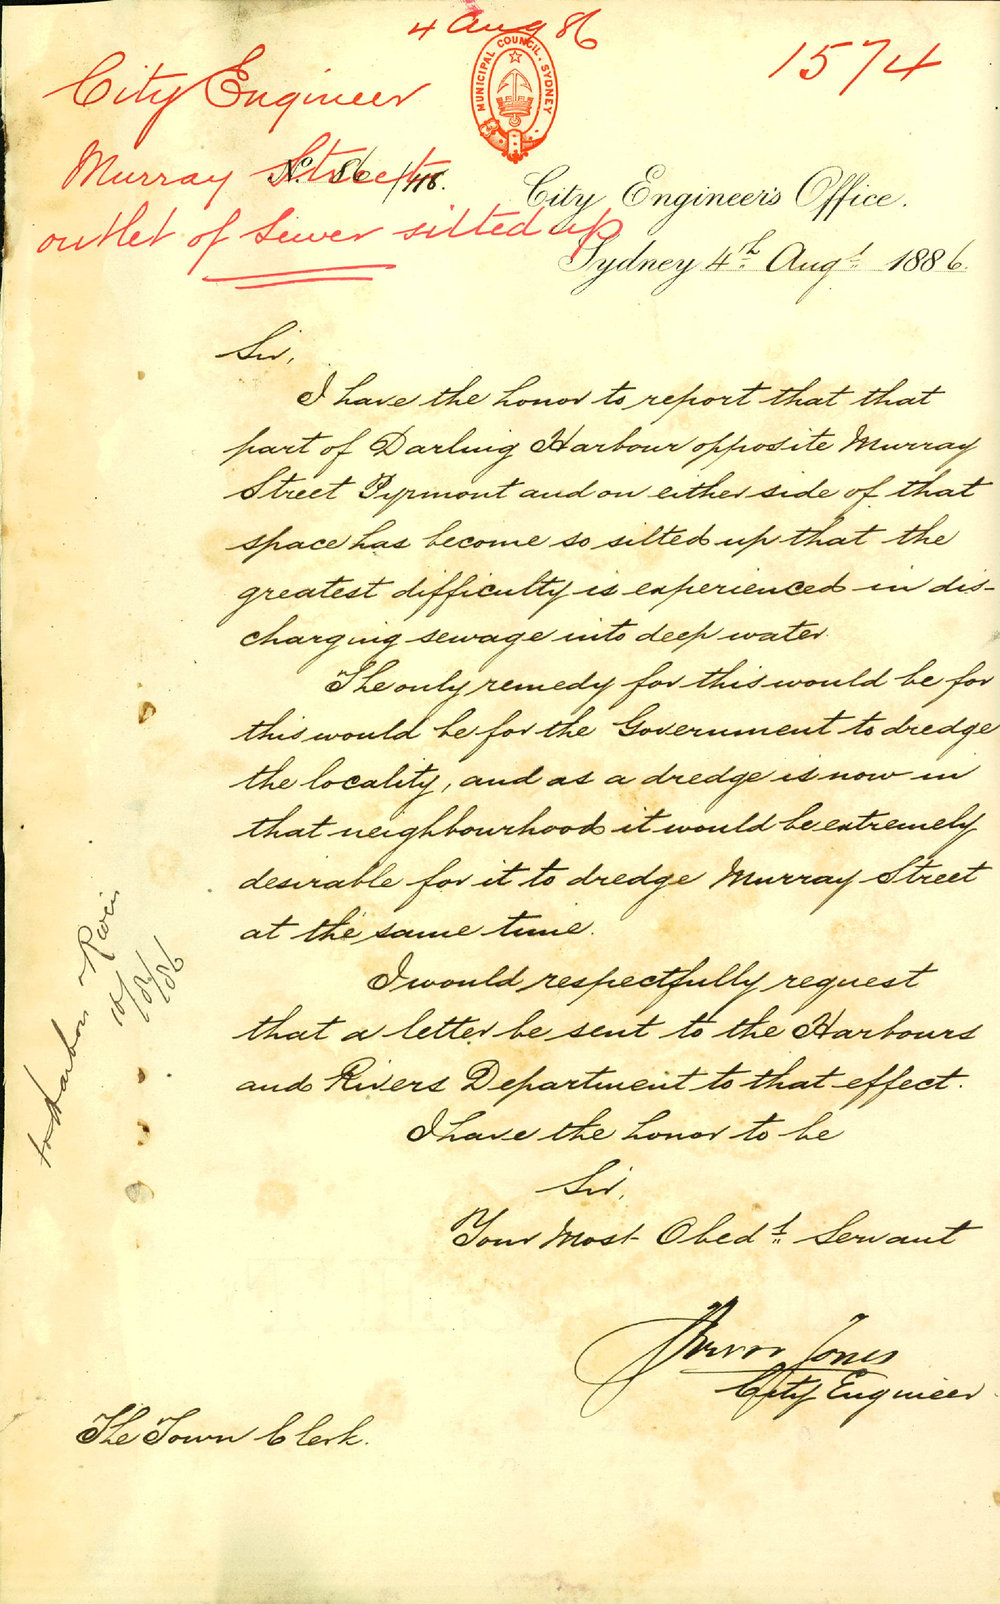 4 Aug 86
MUNICIPAL COUNCIL. SYDNEY
1574
City Engineer
Murray Street
outlet of sewer silted up
No. 86/418.
City Engineer's Office.
Sydney 4th Augt 1886.
Sir,
I have the honor to report that that
part of Darling Harbour opposite Murray
Street Pyrmont and on either side of that
space has become so silted up that the
greatest difficulty is experienced in dis-
charging sewage into deep water.
The only remedy for this would be for
this would be for the Government to dredge
the locality, and as a dredge is now in
that neighbourhood it would be extremely
desirable for it to dredge Murray Street
at the same time.
I would respectfully request
that a letter be sent to the Harbours
and Rivers Department to that effect.
I have the honor to be
Sir,
Your Most Obedt. Servant
Jones
City Engineer
The Town Clerk.
to Harbor